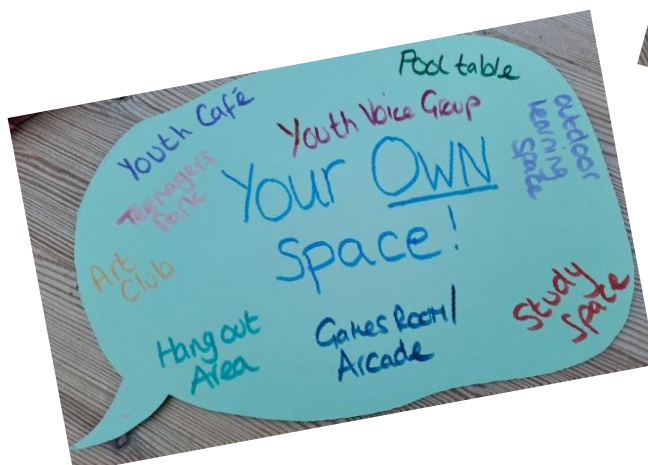 Pool table
Youth Café
Youth Voice Group
outdoor
learning
Space
Teenagers
Park
Your OWN
Space!
Art
Club
Study
Space
Hang out
Area
Games Room/
Arcade